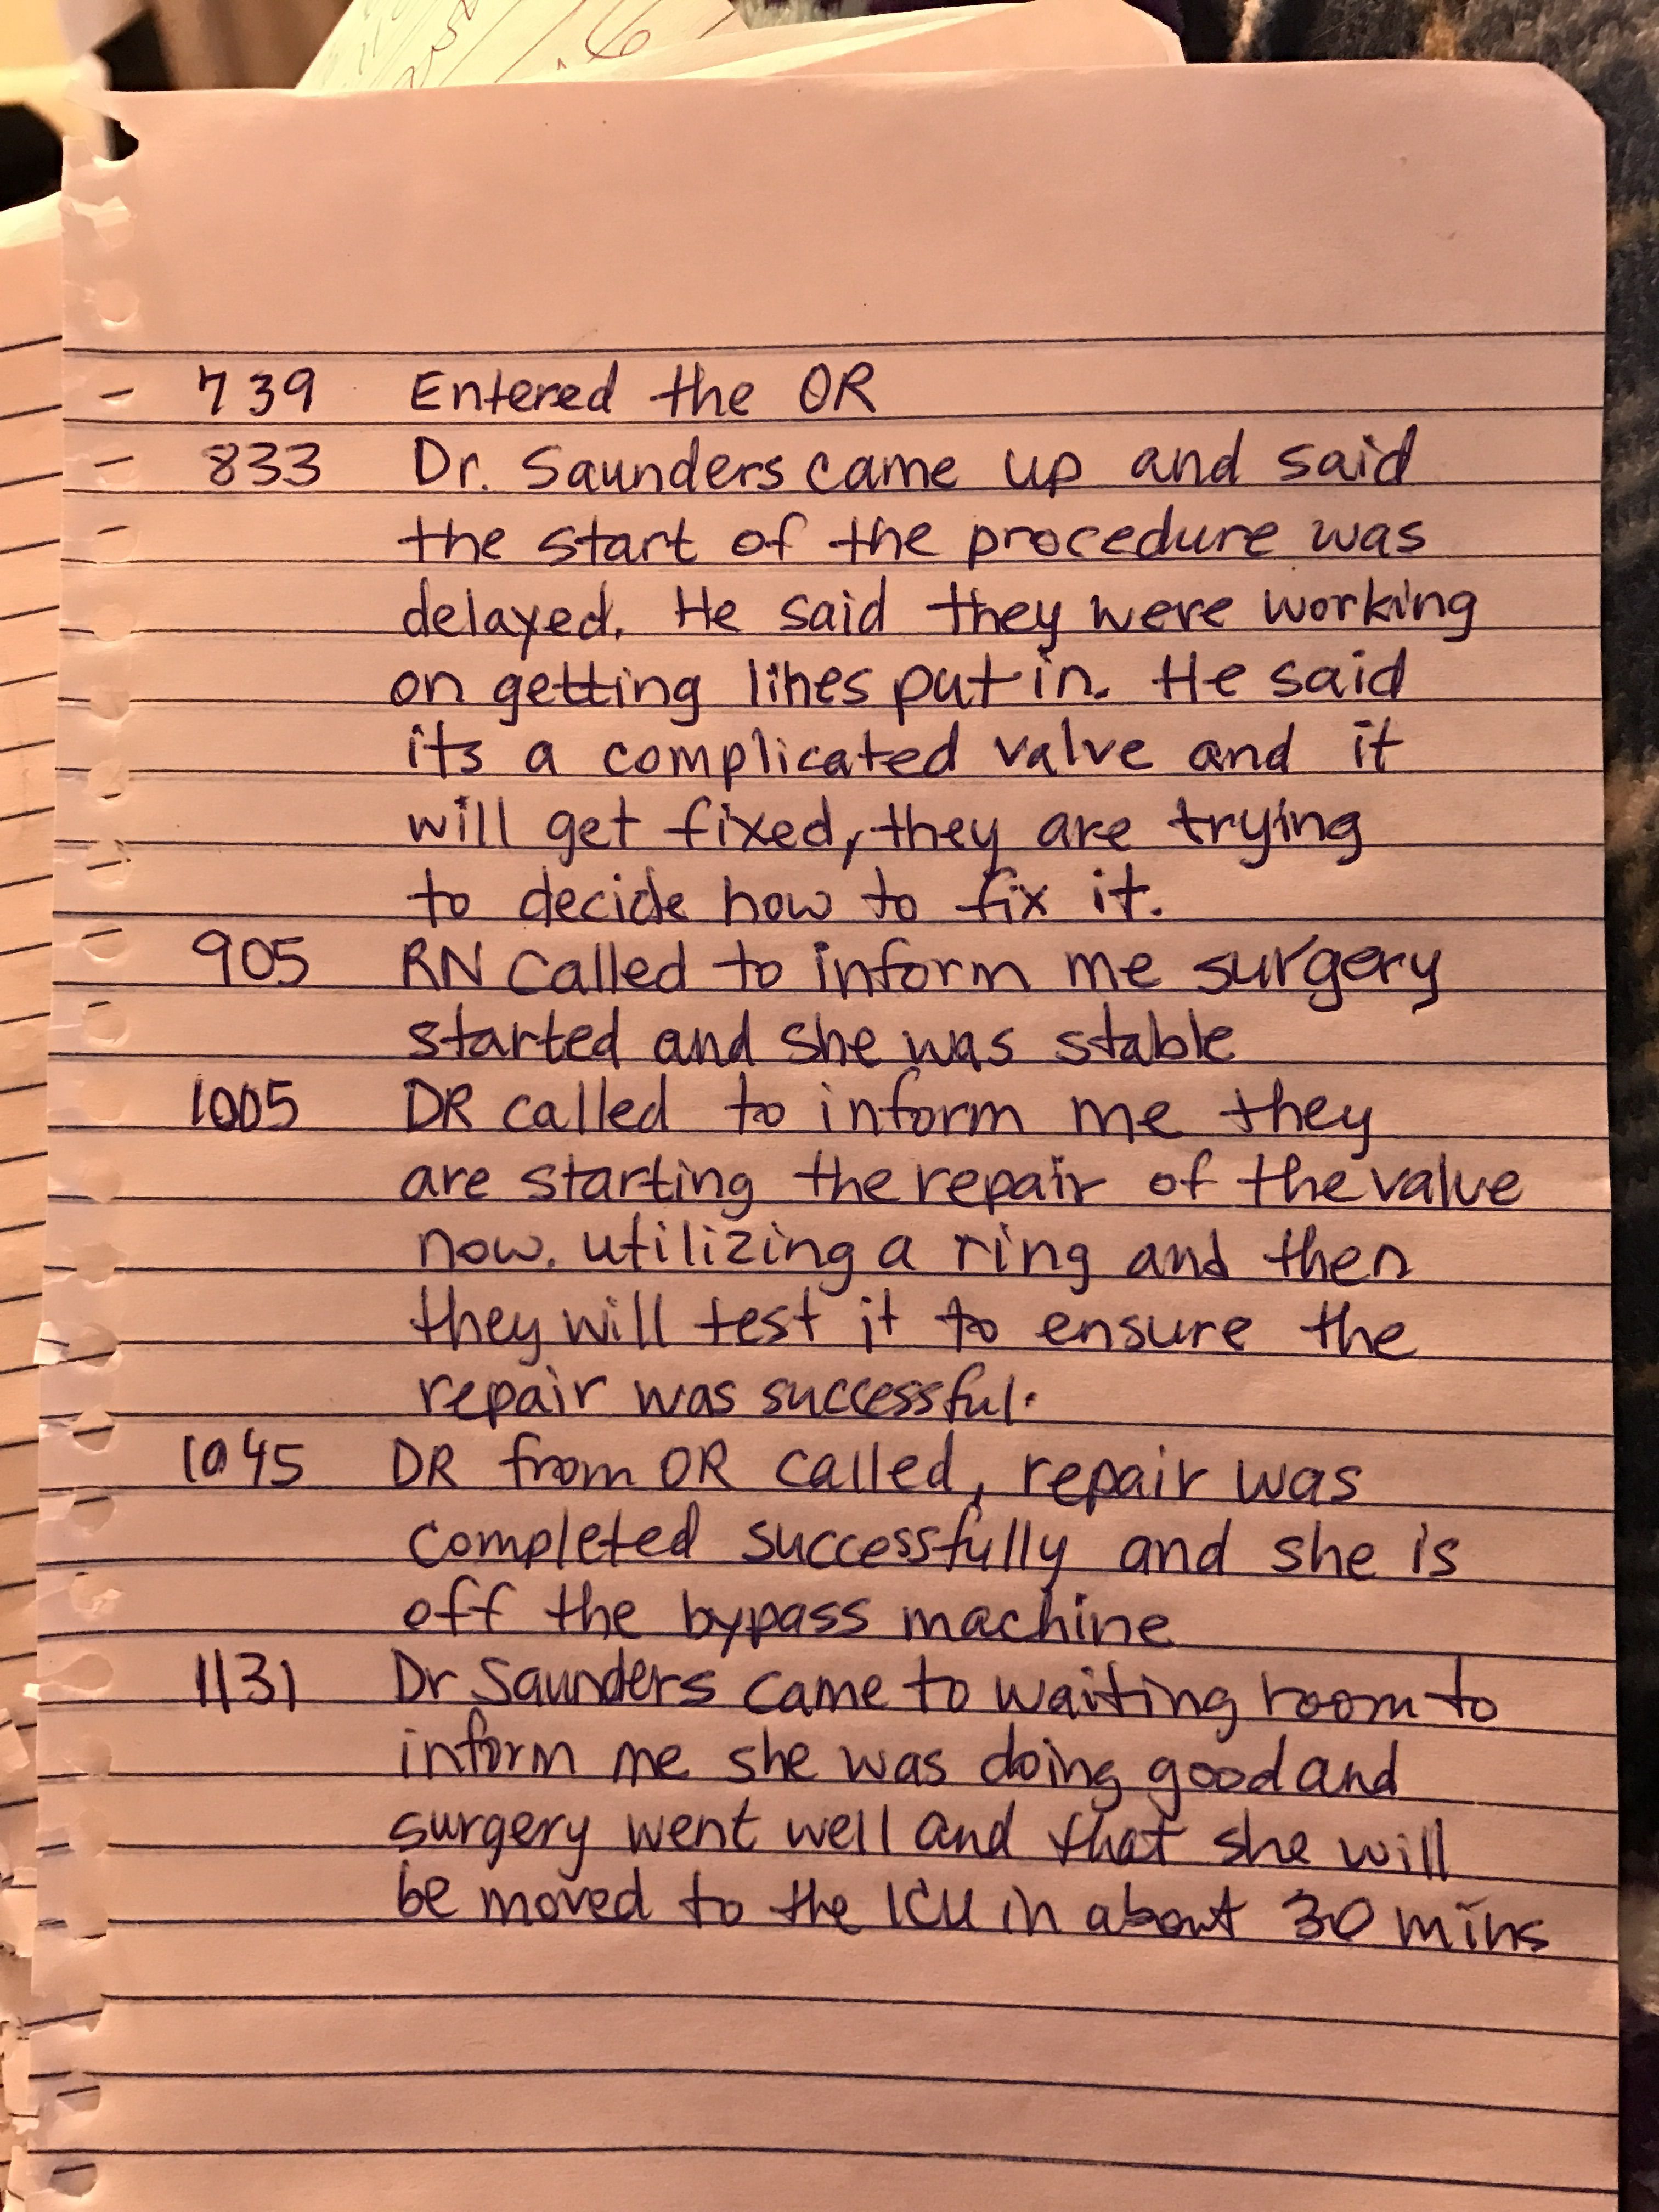 739 Entered the OR
833 Dr. Saunders came up and said
the start of the procedure was
delayed. He said they were working
on getting lines put in. He said
its a complicated valve and it
will get fixed, they are trying
to decide how to fix it.
905 RN called to inform me surgery
started and she was stable
1005 DR called to inform me they
are starting the repair of the valve
now. utilizing a ring and then
they will test it to ensure the
repair was successful.
1045 DR from OR called, repair was
completed successfully and she is
off the bypass machine
1131 Dr Saunders came to waiting room to
inform me she was doing good and
surgery went well and that she will
be moved to the ICU in about 30 mins